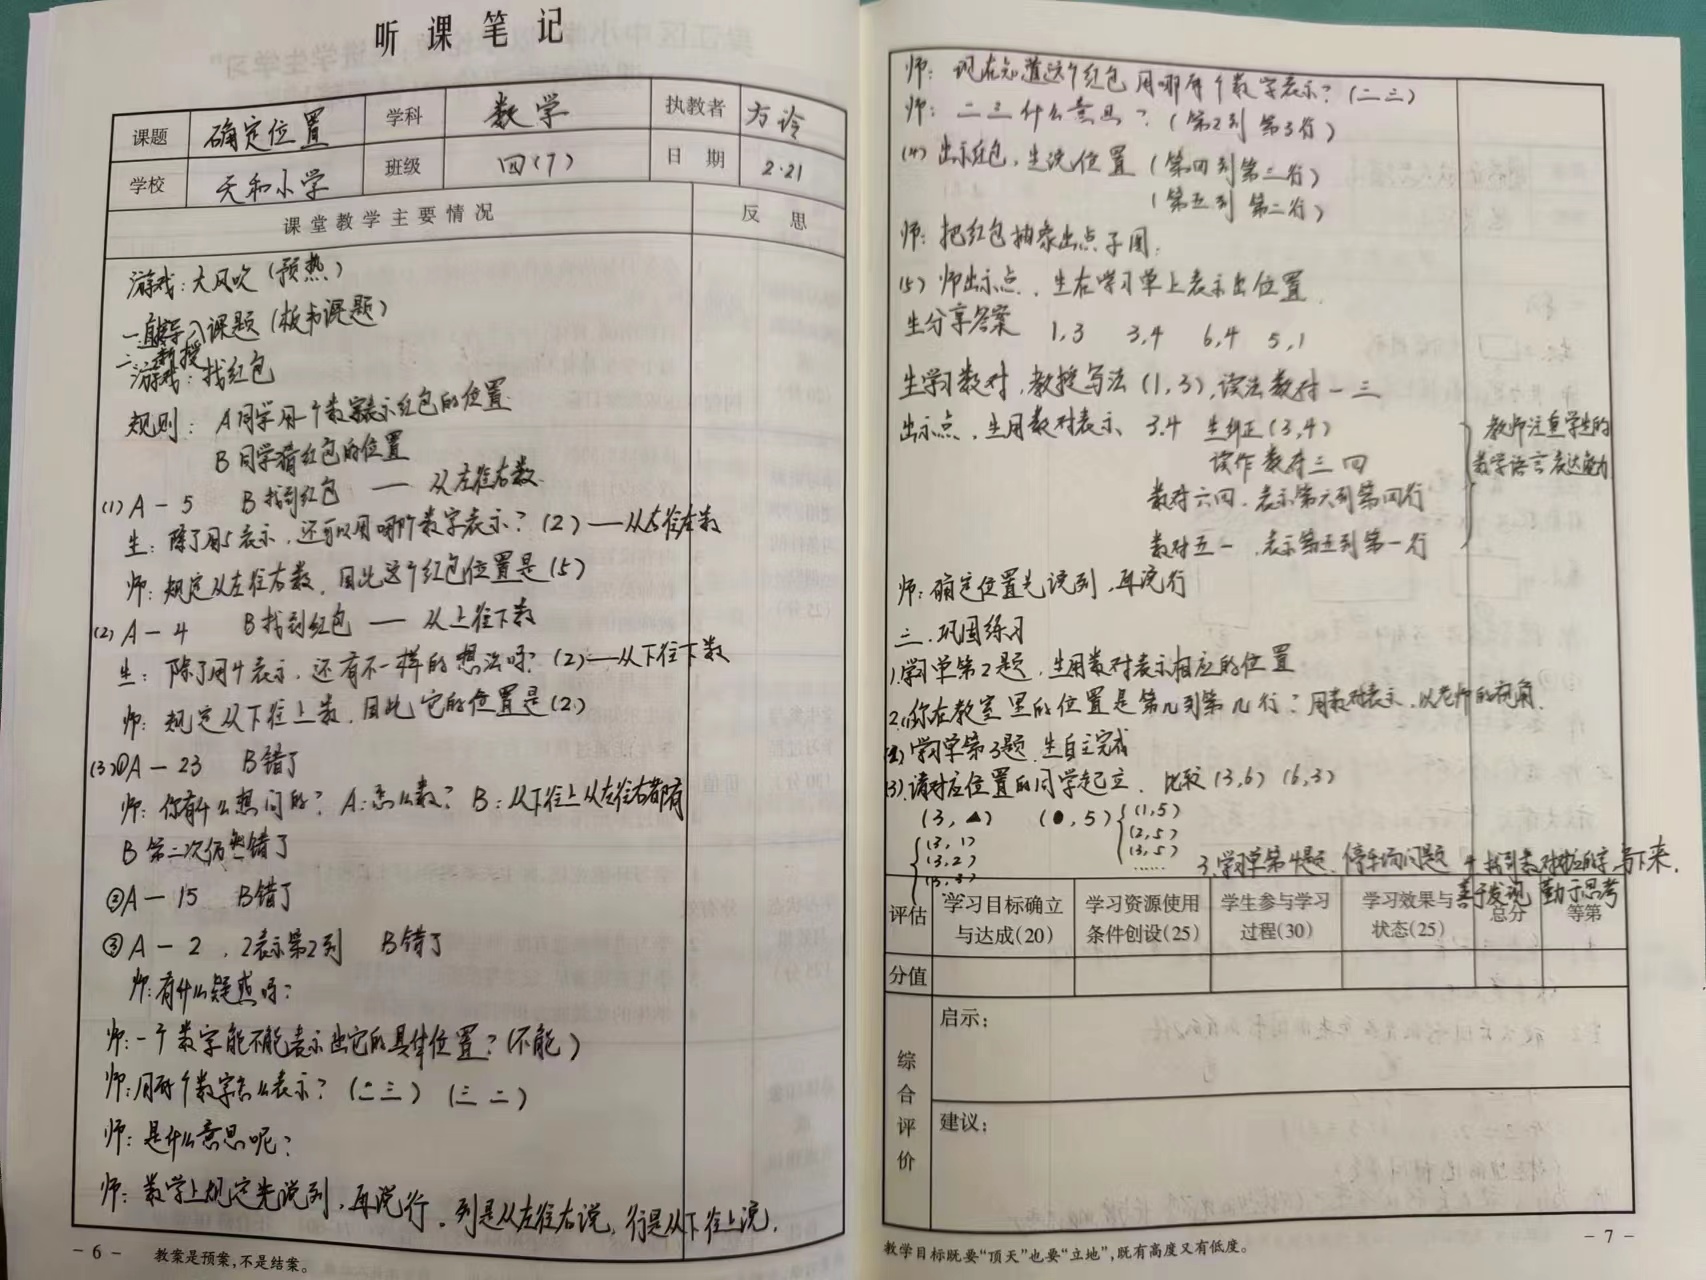 听课笔记
课题 确定位置 学科 数学 执教者 方泠
学校 天和小学 班级 四(7) 日期 2.21
课堂教学主要情况 反思
游戏:大风吹(预热)
一.直接导入课题(板书课题)
二.新授
游戏:找红包
规则: A同学用一个数字表示红包的位置
B同学猜红包的位置
(1) A-5 B找到红包 —— 从左往右数
生:除了用5表示,还可以用哪个数字表示?(2)——从右往左数
师:规定从左往右数,因此这个红包位置是(5)
(2) A-4 B找到红包 —— 从上往下数
生:除了用4表示,还有不一样的想法吗?(2)——从下往下数
师:规定从下往上数,因此它的位置是(2)
(3)①A-23 B错了
师:你有什么想问的? A:怎么数? B:从下往上从左往右都有
B第二次仍然错了
②A-15 B错了
③A-2,2表示第2列 B错了
师:有什么疑惑吗?
师:一个数字能不能表示出它的具体位置?(不能)
师:用两个数字怎么表示?(二三)(三 二)
师:是什么意思呢?
师:数学上规定先说列,再说行。列是从左往右说,行是从下往上说.
- 6 - 教案是预案,不是结案。
师:现在知道这个红包用哪两个数字表示?(二三)
师:二三什么意思?(第2列 第3行)
(4)出示红包,生说位置(第四列第三行)
(第五列第二行)
师:把红包抽象出点子图.
(5)师出示点,生在学习单上表示出位置.
生分享答案 1,3 3,4 6,4 5,1
生学习数对,教授写法(1,3),读法数对一三
出示点,生用数对表示 3.4 生纠正(3,4)
读作数对三四
数对六四,表示第六列第四行
数对五一,表示第五列第一行
教师注重学生的
数学语言表达能力
师:确定位置先说列,再说行
三.巩固练习
1.学习单第2题,生用数对表示相应的位置
2.(1)你在教室里的位置是第几列第几行?用数对表示,以老师的视角.
(2)学习单第3题,生自主完成
(3).请对应位置的同学起立. 比较(3,6)(6,3)
(3,▲) (●,5) (1,5)
(3,1) (2,5)
(3,2) (3,5)
(3,3) ......
3.学习单第4题,停车场问题 4找到数对对应的字,写下来.
善于发现 勤于思考
评估 学习目标确立与达成(20) 学习资源使用条件创设(25) 学生参与学习过程(30) 学习效果与状态(25) 总分 等第
分值
综合评价
启示:
建议:
教学目标既要“顶天”也要“立地”,既有高度又有低度。 - 7 -